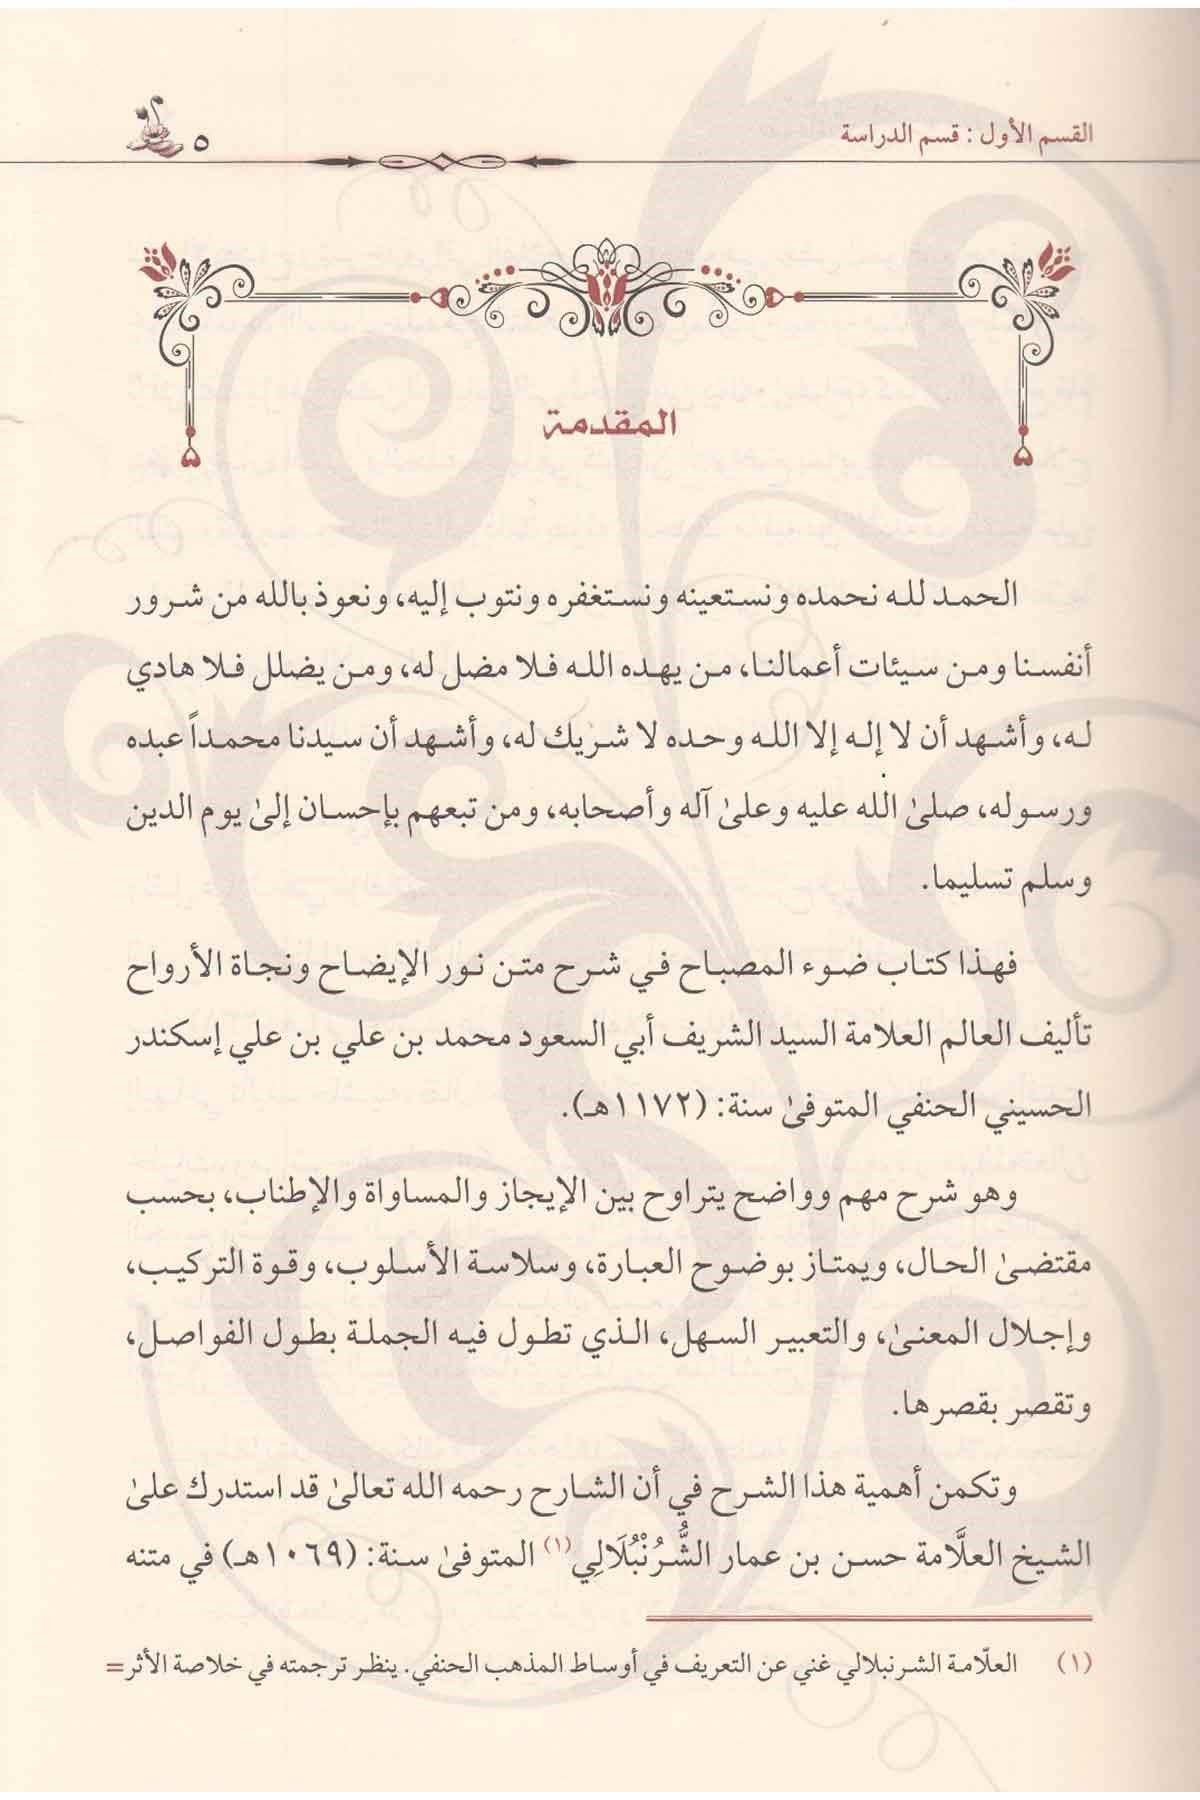 القسم الأول : قسم الدراسة
٥
المقدمة
الحمد لله نحمده ونستعينه ونستغفره ونتوب إليه، ونعوذ بالله من شرور
أنفسنا ومن سيئات أعمالنا، من يهده الله فلا مضل له، ومن يضلل فلا هادي
له، وأشهد أن لا إله إلا الله وحده لا شريك له، وأشهد أن سيدنا محمداً عبده
ورسوله، صلىٰ الله عليه وعلىٰ آله وأصحابه، ومن تبعهم بإحسان إلىٰ يوم الدين
وسلم تسليما.
فهذا كتاب ضوء المصباح في شرح متن نور الإيضاح ونجاة الأرواح
تأليف العالم العلامة السيد الشريف أبي السعود محمد بن علي بن علي إسكندر
الحسيني الحنفي المتوفىٰ سنة: (١١٧٢هـ).
وهو شرح مهم وواضح يتراوح بين الإيجاز والمساواة والإطناب، بحسب
مقتضىٰ الحال، ويمتاز بوضوح العبارة، وسلاسة الأسلوب، وقوة التركيب،
وإجلال المعنىٰ، والتعبير السهل، الذي تطول فيه الجملة بطول الفواصل،
وتقصر بقصرها.
وتكمن أهمية هذا الشرح في أن الشارح رحمه الله تعالىٰ قد استدرك علىٰ
الشيخ العلَّامة حسن بن عمار الشُّرُنْبُلَالِي(١) المتوفىٰ سنة: (١٠٦٩هـ) في متنه
(١) العلّامة الشرنبلالي غني عن التعريف في أوساط المذهب الحنفي. ينظر ترجمته في خلاصة الأثر =